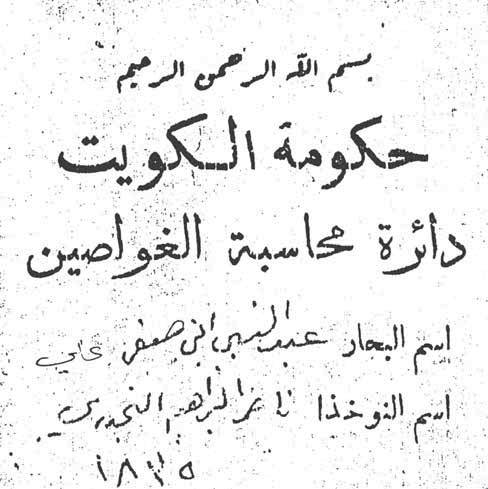 بسم الله الرحمن الرحيم
حكومة الكويت
دائرة محاسبة الغواصين
اسم البحار عبد النبي ابن صفر علي
اسم النوخذا ابراهيم النجدي
١٨٢٥